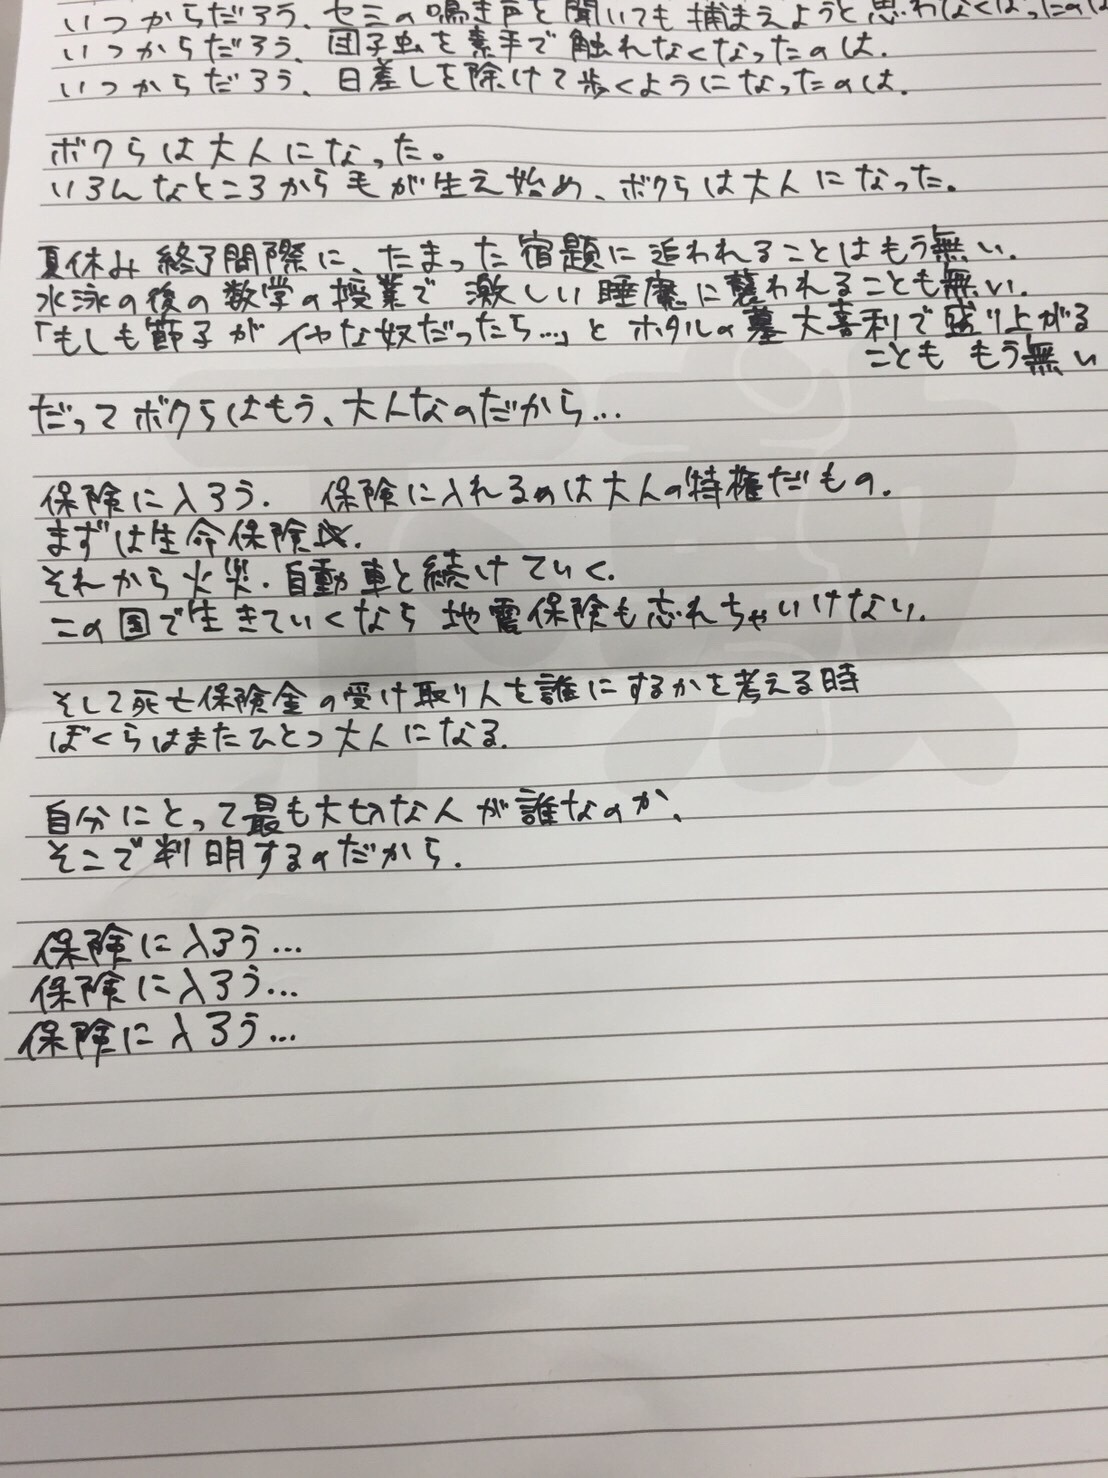 いつからだろう、セミの鳴き声を聞いても捕まえようと思わなくなったのは
いつからだろう、団子虫を素手で触れなくなったのは.
いつからだろう、日差しを除けて歩くようになったのは.
ボクらは大人になった。
いろんなところから毛が生え始め、ボクらは大人になった。
夏休み終了間際に、たまった宿題に追われることはもう無い.
水泳の後の数学の授業で激しい睡魔に襲われることも無い.
「もしも節子がイヤな奴だったら…」とホタルの墓大喜利で盛り上がる
こともももう無い
だってボクらはもう、大人なのだから…
保険に入ろう. 保険に入れるのは大人の特権だもの.
まずは生命保険.
それから火災.自動車と続けていく.
この国で生きていくなら地震保険も忘れちゃいけない.
そして死亡保険金の受け取り人を誰にするかを考える時
ぼくらはまたひとつ大人になる.
自分にとって最も大切な人が誰なのか、
そこで判明するのだから.
保険に入ろう…
保険に入ろう…
保険に入ろう…